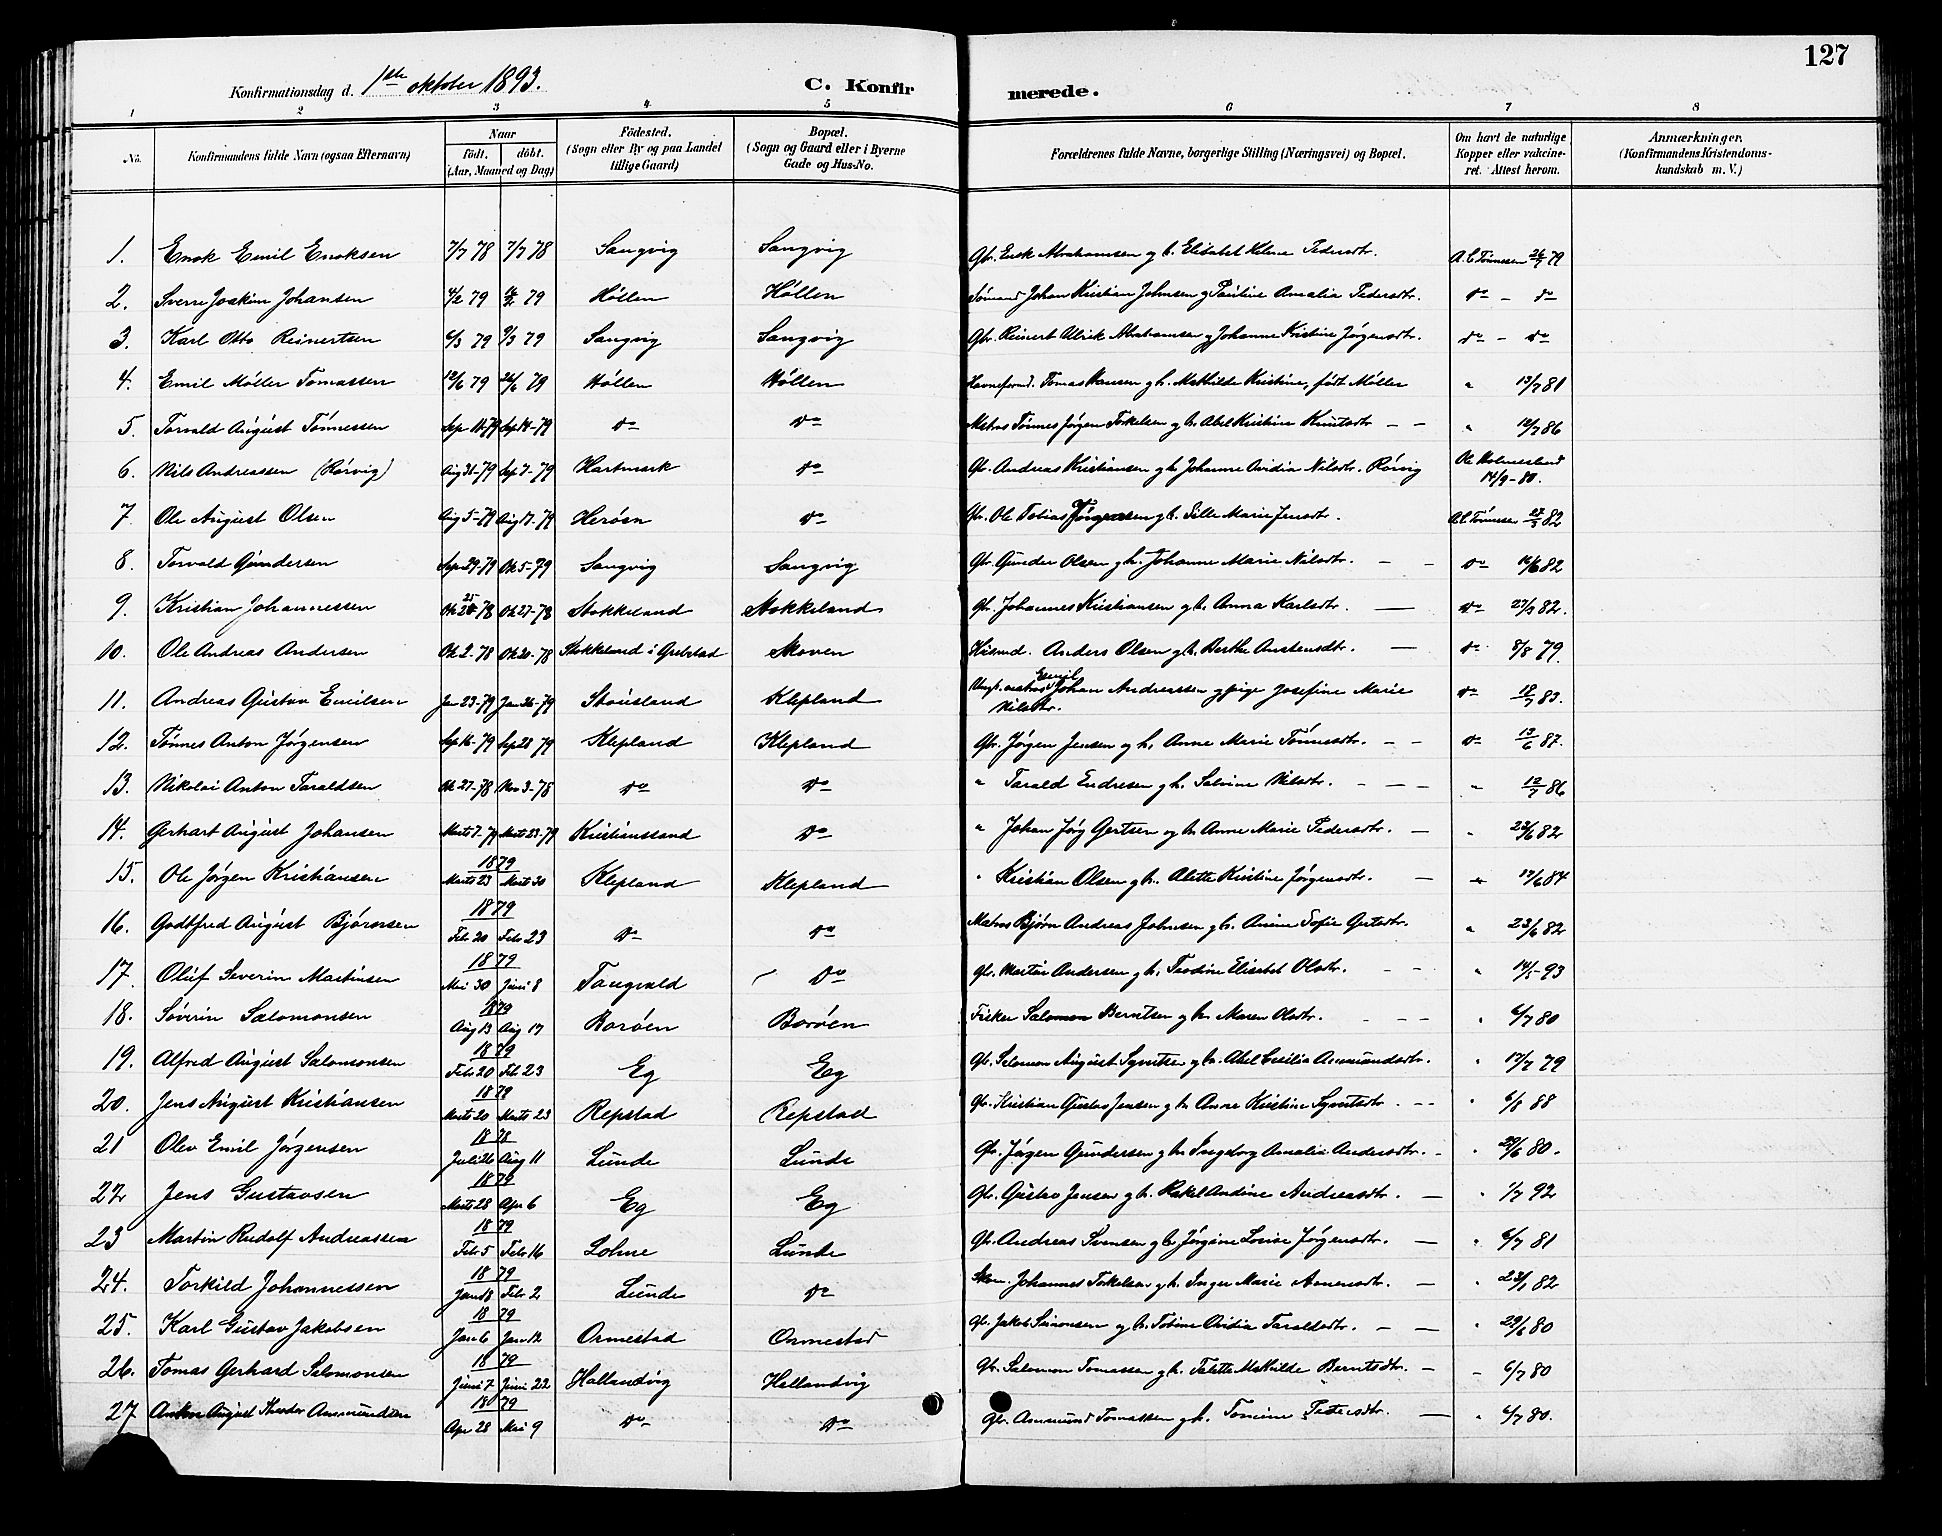 127
Konfirmationsdag d. 1ste oktober 1893. C. Konfirmerede.
1 2 3 4 5 6 7 8
No. Konfirmandens fulde Navn (ogsaa Efternavn) Naar födt. döbt. (Aar, Maaned og Dag) Födested. (Sogn eller By og paa Landet tillige Gaard) Bopæl. (Sogn og Gaard eller i Byerne Gade og Hus-No. Forældrenes fulde Navne, borgerlige Stilling (Næringsvei) og Bopæl. Om havt de naturlige Kopper eller vakcineret. Attest herom. Anmærkninger. (Konfirmandens Kristendomskundskab m. V.)
1. Enok Emil Enoksen 7/7 78 Sangvig Sangvig Gbr. Enok Abrahamsen g h. Elisabet Helene Pedersdtr. A. C. Tönnesen 26/7 79
2. Sverre Joakim Johansen 4/2 79 Höllen Höllen Sömand Johan Kristian Johnsen g Pauline Amalia Pedersdtr. do - do
3. Karl Otto Reinertsen 6/3 79 9/3 79 Sangvig Sangvig Gbr. Reinert Ulrik Abrahamsen g Johanne Kristine Jörgensdtr. do - do
4. Emil Möller Tomassen 12/6 79 24/6 79 Höllen Höllen Havneformd. Tomas Hansen g h. Mathilde Kristine, födt Möller " 13/7 81
5. Torvald August Tönnessen Sep 11-79 Sep 14-79 do do Matros Tönnes Jörgen Torkelsen g h. Abel Kristine Knutsdtr - - " 12/7 86
6. Nils Andreassen (Rörvig) Aug 31-79 Sep 7-79 Hartmark do Gbr. Andreas Kristiansen g h. Johanne Avidia Nilsdtr. Rörvig Ole Holmesland 14/9-80.
7. Ole August Olsen Aug 5-79 Aug 17-79 Heröen do Gbr. Ole Tobias Jörgensen g h. Sille Marie Jensdtr. A. C. Tönnesen 82
8. Torvald Gundersen Sep 29-79 Ok 5-79 Sangvig Sangvig Gbr. Gunder Olsen g h. Johanne Marie Nilsdtr. - - do 16/6 82
9. Kristian Johannessen 78 Ok 27-78 Stokkeland Stokkeland Gbr. Johannes Kristiansen g h. Anna Karlsdtr. - do 27/3 82.
10. Ole Andreas Andersen Ok 2-78 Ok 20-78 Stokkeland i Grebstad Skoven Husmd. Anders Olsen g h. Berthe Austensdtr. - do 8/8 79.
11. Andreas Gustav Emilsen Jan 23-79 Jan 26-79 Stousland Klepland Ungk. matros Emil Johan Andreassen g pige Josefine Marie Nilsdtr. do 18/7 83.
12. Tönnes Anton Jörgensen Sep 16-79 Sep 28 79 Klepland Klepland Gbr. Jörgen Jensen og h. Anne Marie Tönnesdtr. - - do 13/6 87.
13. Nikolai Anton Taraldsen Ok 27-78 Nov 3-78 do do " Tarald Endresen g h. Salvine Nilsdtr. - - - " 12/7 86
14. Gerhart August Johansen Marts 7-79 Marts 23-79 Kristianssand do " Johan Jörg Gertsen og h. Anne Marie Pedersdtr. - " 23/6 82
15. Ole Jörgen Kristiansen 1879 Marts 23 Marts 30 Klepland Klepland " Kristian Olsen g h. Alette Kristine Jörgensdtr. - " 19/6 84
16. Godtfred August Björnsen 1879 Febr. 20 Febr 23 do do Matros Björn Andreas Johnsen g h. Anine Sofie Gertsdtr. " 23/6 82
17. Oluf Severin Martinsen 1879 Mai 30 Juni 8 Tangvald do Gbr. Martin Andersen g h. Teodine Elisabet Olsdtr. - - " 14/5-93
18. Söverin Salomonsen 1879 Aug 13 Aug 17 Boröen Boröen Fisker Salomon Berntsen g h. Maren Olsdtr. - - - " 6/7 80
19. Alfred August Salomonsen 1879 Febr 20 Feb 23 Eg Eg Gbr. Salomon August Syvertsen g h. Abel Cecilia Asmundsdtr. " 17/7 79
20. Jens August Kristiansen 1879 Marts 20 Marts 23 Repstad Repstad Gbr. Kristian Gustav Jensen g h Anne Kristine Syvertsdtr. - - " 6/8 88
21 Olev Emil Jörgensen 1878 Juli 26 Aug 11 Lunde Lunde Gbr. Jörgen Gundersen g h. Ingeborg Amalia Andersdtr. - " 29/6 80.
22 Jens Gustavsen 1879 Marts 28 Apr 6 Eg Eg Gbr. Gustav Jensen g h. Rakel Andine Andreasdtr. - " 1/7 92
23 Martin Rudolf Andreassen 1879 Febr 5 Febr 16 Lohne Lunde Gbr. Andreas Svensen g h. Jörgine Lovise Jörgensdtr. - " 6/7 81
24. Torkild Johannessen 1879 Jan 18 Febr 2 Lunde do Skom. Johannes Torkelsen g h. Inger Marie Asmensdtr. - " 82
25. Karl Gustav Jakobsen 1879 Jan 6 Jan 12 Ormestad Ormestad Gbr. Jakob Simonsen g h. Tobine Avidia Taraldsdtr. - - " 29/6 80
26. Tomas Gerhard Salomonsen 1879 Juni 7 Juni 22 Hallandvig Hallandvig Gbr. Salomon Tomassen g h. Talette Mathilde Berntsdtr. - - 6/7 80
27 Anton August Theodor Asmundsen 1879 Apr 28 Mai 9 do do Gbr. Asmund Tomassen g h. Tomine Pedersdtr. - " 6/7 80.